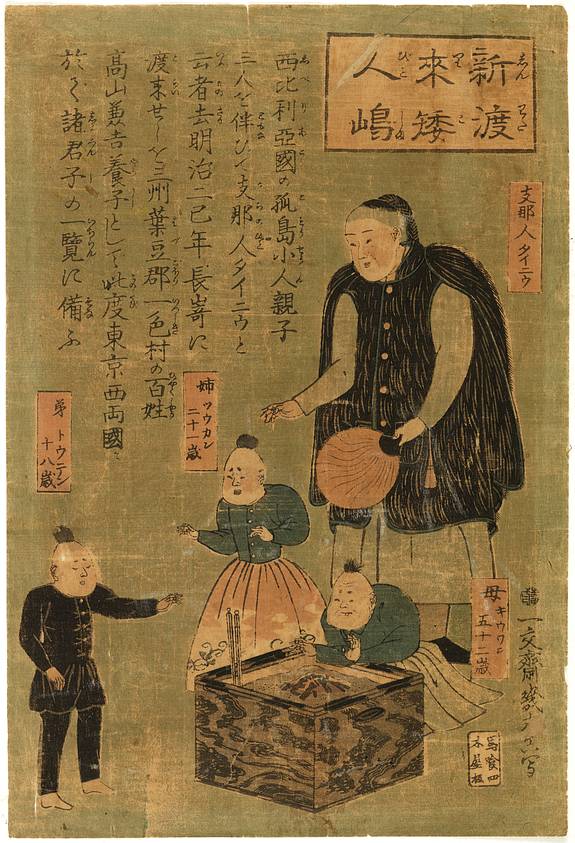 新渡
來矮
人嶋
支那人タイニウ
西比利亞國の孤島小人親子
三人を伴ひて支那人タイニウと
云者去明治二巳年長嵜に
渡来せしを三州葉豆郡一色村の百姓
高山兼吉養子として此度東京西両國に
於て諸君子の一覧に備ふ
姉 ツウカン
二十一歳
弟 トウテン
十八歳
母 キウワニ
五十二歳
一文齋
馬喰四
木屋板